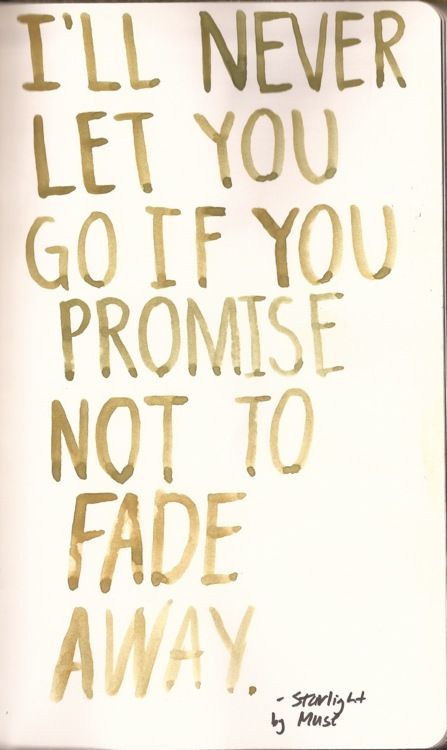 I'LL NEVER
LET YOU
GO IF YOU
PROMISE
NOT TO
FADE
AWAY.
- Starlight
by Muse